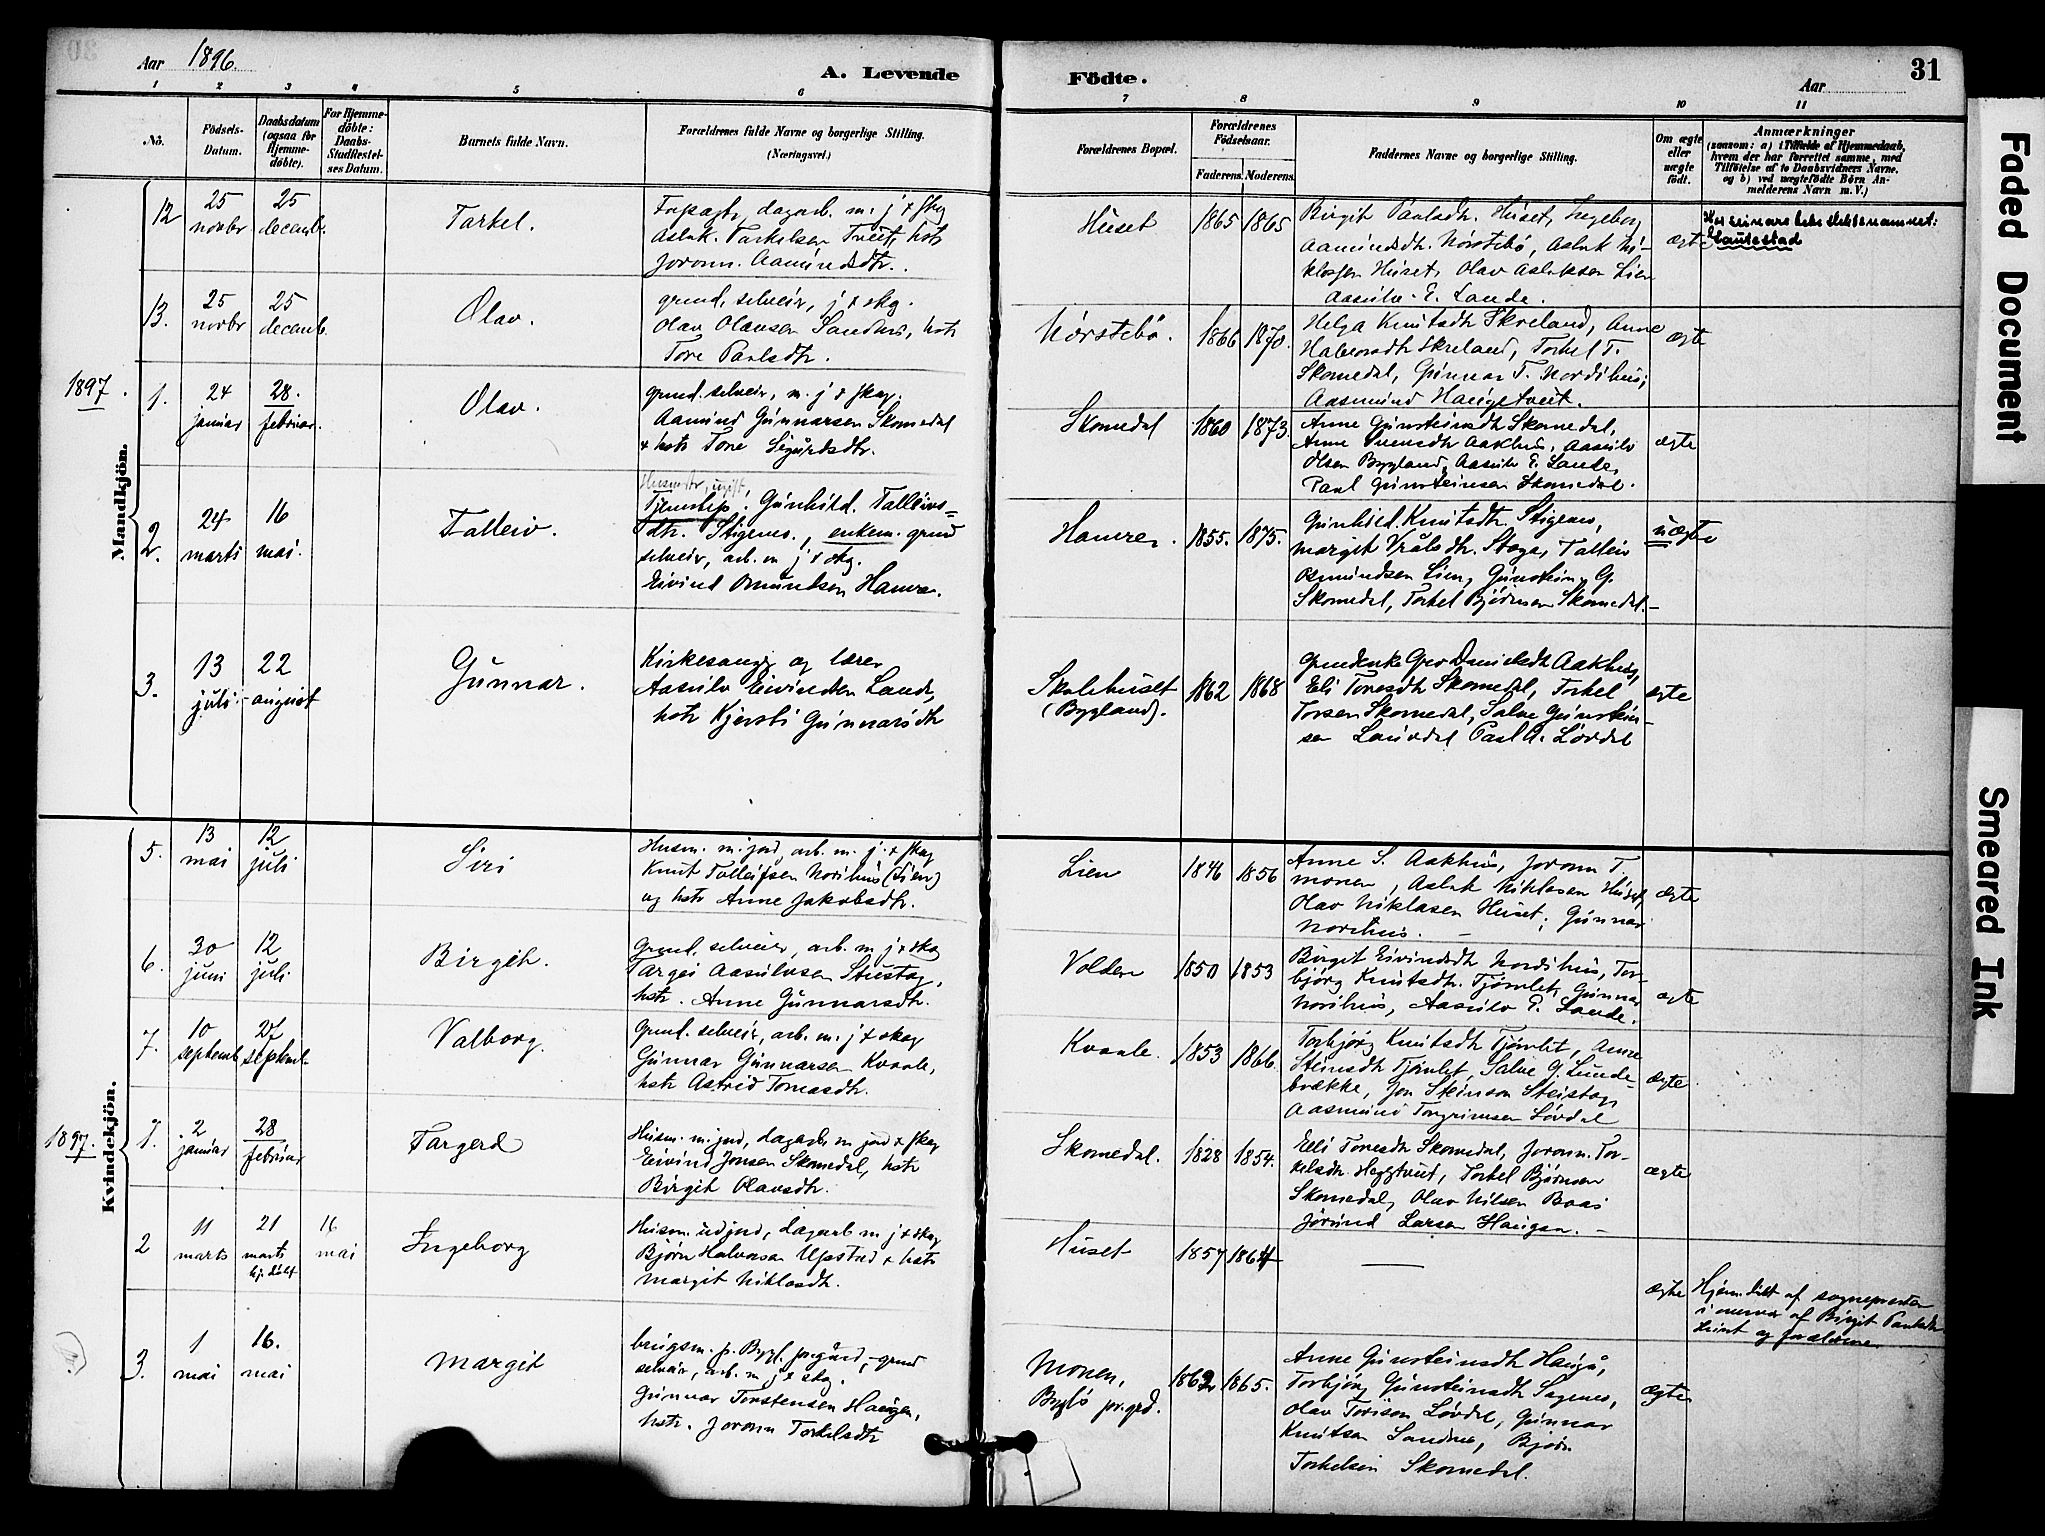 Aar 1896.
A. Levende Födte.
Aar
31
1 2 3 4 5 6 7 8 9 10 11
No.
Födsels-Datum.
Daabsdatum (ogsaa for Hjemme-döbte).
For Hjemme-döbte: Daabs-Stadfæstelses Datum.
Barnets fulde Navn.
Forældrenes fulde Navne og borgerlige Stilling.
(Næringsvei.)
Forældrenes Bopæl.
Forældrenes Födselsaar.
Faderens. Moderens.
Faddernes Navne og borgerlige Stilling.
Om ægte eller uægte födt.
Anmærkninger
(saasom: a) i Tilfælde af Hjemmedaab, hvem der har forrettet samme, med Tilföielse af to Daabsvidners Navne. og b) ved uægtefödte Börn Anmelderens Navn m. V.)
Mandkjön.
12 25 novbr 25 decemb. Tarkel.
dagarb. m. j & skog
Aslak Tarkelsen Tveit, hstr
Joronn Aamundsdtr.
Huset 1865 1865
Birgit Paulsdtr. Huset, Ingeborg
Aamundsdtr. Nörstebö, Aslak Ni-
klasen Huset, Olav Aslaksen Lien
Aasulv E. Lande.
ægte
slektsnamnet:
Hautestad
13. 25 novbr 25 decemb. Olav.
grund, selveier, j & skg.
Olav Olavsen Sandnes, hstr
Tore Paulsdtr.
Nörstebö. 1866 1870.
Helga Knutsdtr Skreland, Anne
Halvorsdtr Skreland, Torkel T.
Skomedal, Gunnar T. Nordihus,
Aasmund Haugetveit.
ægte
1897.
1. 24 januar 28. februar. Olav.
grund. selveier, m. j & skog.
Aamund Gunnarsen Skomedal
& hstr Tone Sigurdsdtr.
Skomedal 1860 1873
Anne Gunsteinsdtr Skomedal,
Anne Svensdtr Aakhus, Aasulv
Olsen Bygland, Aasulv E. Lande,
Paul Gunsteinsen Skomedal.
ægte
2. 24 marts 16 mai. Talleiv
ugift,
Tjenestep. Gunhild Talleivs-
dtr. Stigenes, enkem. grund
selveier, arb. m j & skg.
Eivind Omundsen Hamre.
Hamre. 1855. 1875.
Gunhild Knutsdtr Stigenes,
Margit Vraalsdtr. Stoga, Talleiv
Osmundsen Lien, Gunstein G.
Skomedal, Torkel Björnsen Skomedal.-
uægte
3. 13 juli 22 august Gunnar.
Kirkesanger og lærer
Aasulv Eivindsen Lande,
hstr Kjersti Gunnarsdtr
Skolehuset
(Bygland). 1862 1868
Gro Danielsdtr Aakhus,
Eli Toresdtr Skomedal, Torkel
Torsen Skomedal, Salve Gunstein-
sen Lauvdal Paul A. Lövdal
ægte
Kvindekjön.
5. 13 mai 12 juli Siri
Husm. m. jord, arb. m. j. & skog
Knut Talleifsen Norihus (Lien)
og hstr Anne Jakobsdtr.
Lien 1846 1856
Anne S. Aakhus, Joronn T.
Monen, Aslak Niklasen Huset,
Olav Niklasen Huset; Gunnar
Norihus.-
ægte
6. 30 juni 12 juli Birgit.
Grund. selveier, arb. m j & skog
Targei Aasulvsen Stiestog,
hstr. Anne Gunnarsdtr.
Volden 1850 1853
Birgit Eivindsdtr Nordihus, Tor-
björg Knutsdtr. Tjömlet, Gunnar
Norihus, Aasulv E. Lande.
ægte
7. 10 septemb. 27 septemb. Valborg.
Grund. selveier, arb. m. j & skog
Gunnar Gunnarsen Kvaale,
hstr Astrid Tomasdtr.
Kvaale. 1853 1866.
Torbjörg Knutsdtr Tjömlet, Anne
Steinsdtr Tjömlet, Salve G. Lunde-
brække, Jon Steinson Steistog,
Aasmund Torgrimsen Lövdal
ægte
1897.
1. 2 januar 28 februar Targerd
Husm. m. jord, dagarb. m jord & skog
Eivind Jonsen Skomedal, hstr
Birgit Olavsdtr.
Skomedal. 1828 1854.
Elli Toresdtr Skomedal, Joronn Tor-
kelsdtr. Heggtveit, Torkel Björnsen
Skomedal, Olav Nilsen Baas
Jörund Larsen Haugen.-
ægte
2 11 marts 21 marts hj. döbt 16 mai Ingeborg
Husm. ud jord, dagarb m j & skog
Björn Halvorsen Upstad & hstr
Margit Niklasdtr.
Huset 1857 1864
—
ægte
Hjem. döbt af sognepresten
i nærvær af Birgit Paulsdtr
Huset og forældrene
3. 1 mai 16. mai Margit
brugsm. p. Bygl. pr.gård, grund
selveier, arb. m j & skg.
Gunnar Torstensen Haugen,
hstr. Joronn Torkelsdtr
Monen,
Bygl. pr.grd. 1862 1865.
Anne Gunsteinsdtr Haugå,
Torbjörg Gunsteinsdtr Sagenes,
Olav Torison Lövdal, Gunnar
Knutsen Sandnes, Björn
Torkelsen Skomedal.
ægte
Faded Document
Smeared Ink